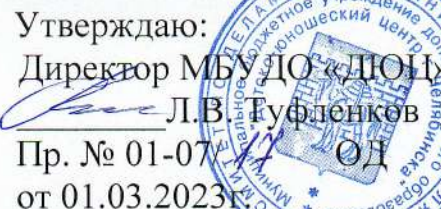 Утверждаю:
Директор МБУДО «ДЮЦ»
Л.В. Туфленков
Пр. № 01-07/17 ОД
от 01.03.2023г.